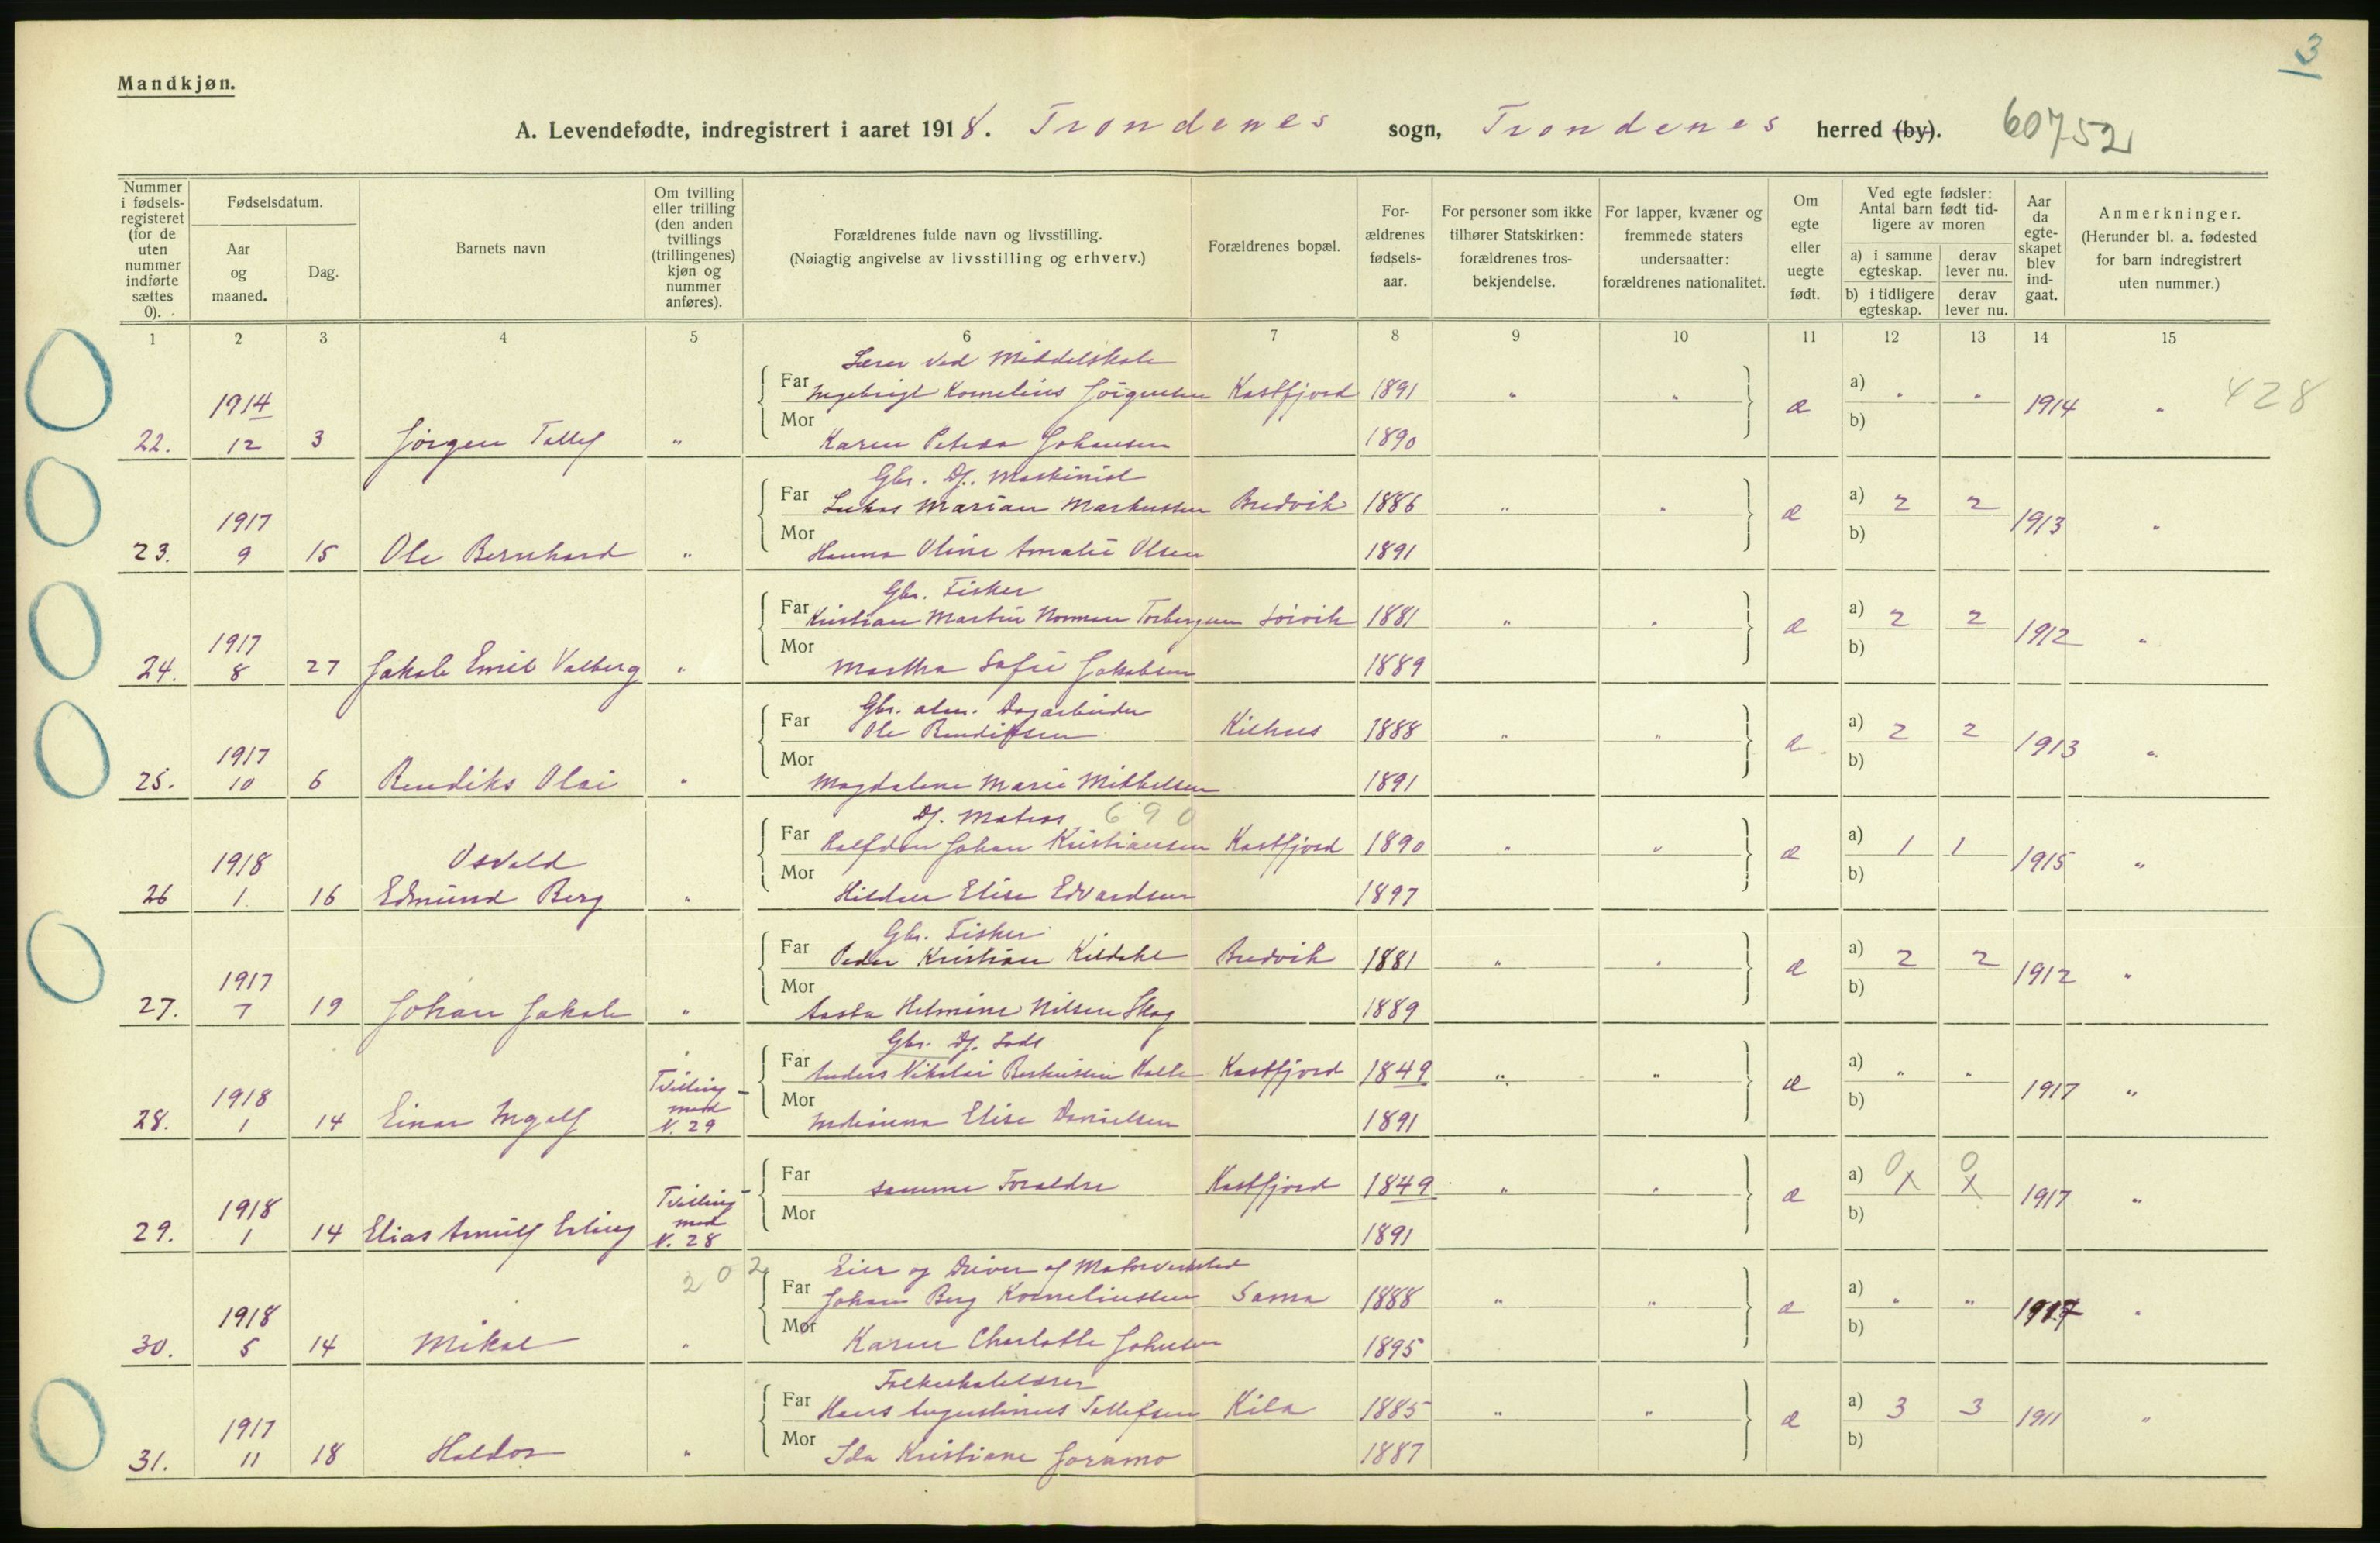 3
Mandkjøn.
A. Levendefødte, indregistrert i aaret 1918. Trondenes sogn, Trondenes herred (by). 60752
Nummer i fødselsregisteret (for de uten nummer indførte sættes 0).
Fødselsdatum.
Aar og maaned.
Dag.
Barnets navn
Om tvilling eller trilling (den anden tvillings (trillingenes) kjøn og nummer anføres).
Forældrenes fulde navn og livsstilling.
(Nøiagtig angivelse av livsstilling og erhverv.)
Forældrenes bopæl.
Forældrenes fødselsaar.
For personer som ikke tilhører Statskirken: forældrenes trosbekjendelse.
For lapper, kvæner og fremmede staters undersaatter: forældrenes nationalitet.
Om egte eller uegte født.
Ved egte fødsler: Antal barn født tidligere av moren
a) i samme egteskap. derav lever nu.
b) i tidligere egteskap. derav lever nu.
Aar da egteskapet blev indgaat.
Anmerkninger.
(Herunder bl. a. fødested for barn indregistrert uten nummer.)
1 2 3 4 5 6 7 8 9 10 11 12 13 14 15
Lærer ved Middelskole
1914 Far Ingebrigt Kornelius Jörgensen Kastfjord 1891 " " æ a) " " 1914 " 428
22. 12 3 Jörgen Tollef " Mor Karen Petrea Johansen 1890 b)
Gbr. Df. Maskinist
1917 Far Lukas Marian Markussen Bredvik 1886 " " æ a) 2 2 1913 "
23. 9 15 Ole Bernhard " Mor Hanna Oline Amalie Olsen 1891 b)
Gbr. Fisker
1917 Far Kristian Martin Norman Torbergsen Sörvik 1881 " " æ a) 2 2 1912 "
24. 8 27 Jakob Emil Valberg " Mor Martha Sofie Jakobsen 1889 b)
Gbr. alm. Dagarbeider
1917 Far Ole Bendiksen Kilhus 1888 " " æ a) 2 2 1913 "
25. 10 6 Bendiks Olai " Mor Magdalene Marie Mikkelsen 1891 b)
Df. Matros 690
1918 Osvald Far Halfdan Johan Kristiansen Kastfjord 1890 " " æ a) 1 1 1915 "
26 1. 16 Edmund Berg " Mor Elise Edvardsen 1897 b)
Gbr. Fisker
1917 Far Peder Kristian Kildahl Bredvik 1881 " " æ a) 2 2 1912 "
27. 7 19 Johan Jakob " Mor Aasta Helmine Nilsen Skog 1889 b)
Gbr. Df. Lods
1918 Tvilling Far Anders Nikolai Kastfjord 1849 " " æ a) " " 1917 "
28. 1 14 Einar Ingolf med N. 29 Mor Elise Danielsen 1891 b)
1918 Tvilling Far samme Foraldre Kastfjord 1849 " " æ a) 0 X 0 X 1917 "
29. 1 14 Elias Arnulf Erling med N. 28 Mor 1891 b)
202 Eier og Driver af Motorverksted
1918 Far Johan Berg Korneliussen Sama 1888 " " æ a) " " 1917 "
30. 5 14 Mikal " Mor Karen Charlotte Johnsen 1895 b)
Folkeskolelærer
1917 Far Hans Augustinus Tollefsen Kila 1885 " " æ a) 3 3 1911 "
31. 11 18 Haldor " Mor Ida Kristiane Joramo 1887 b)